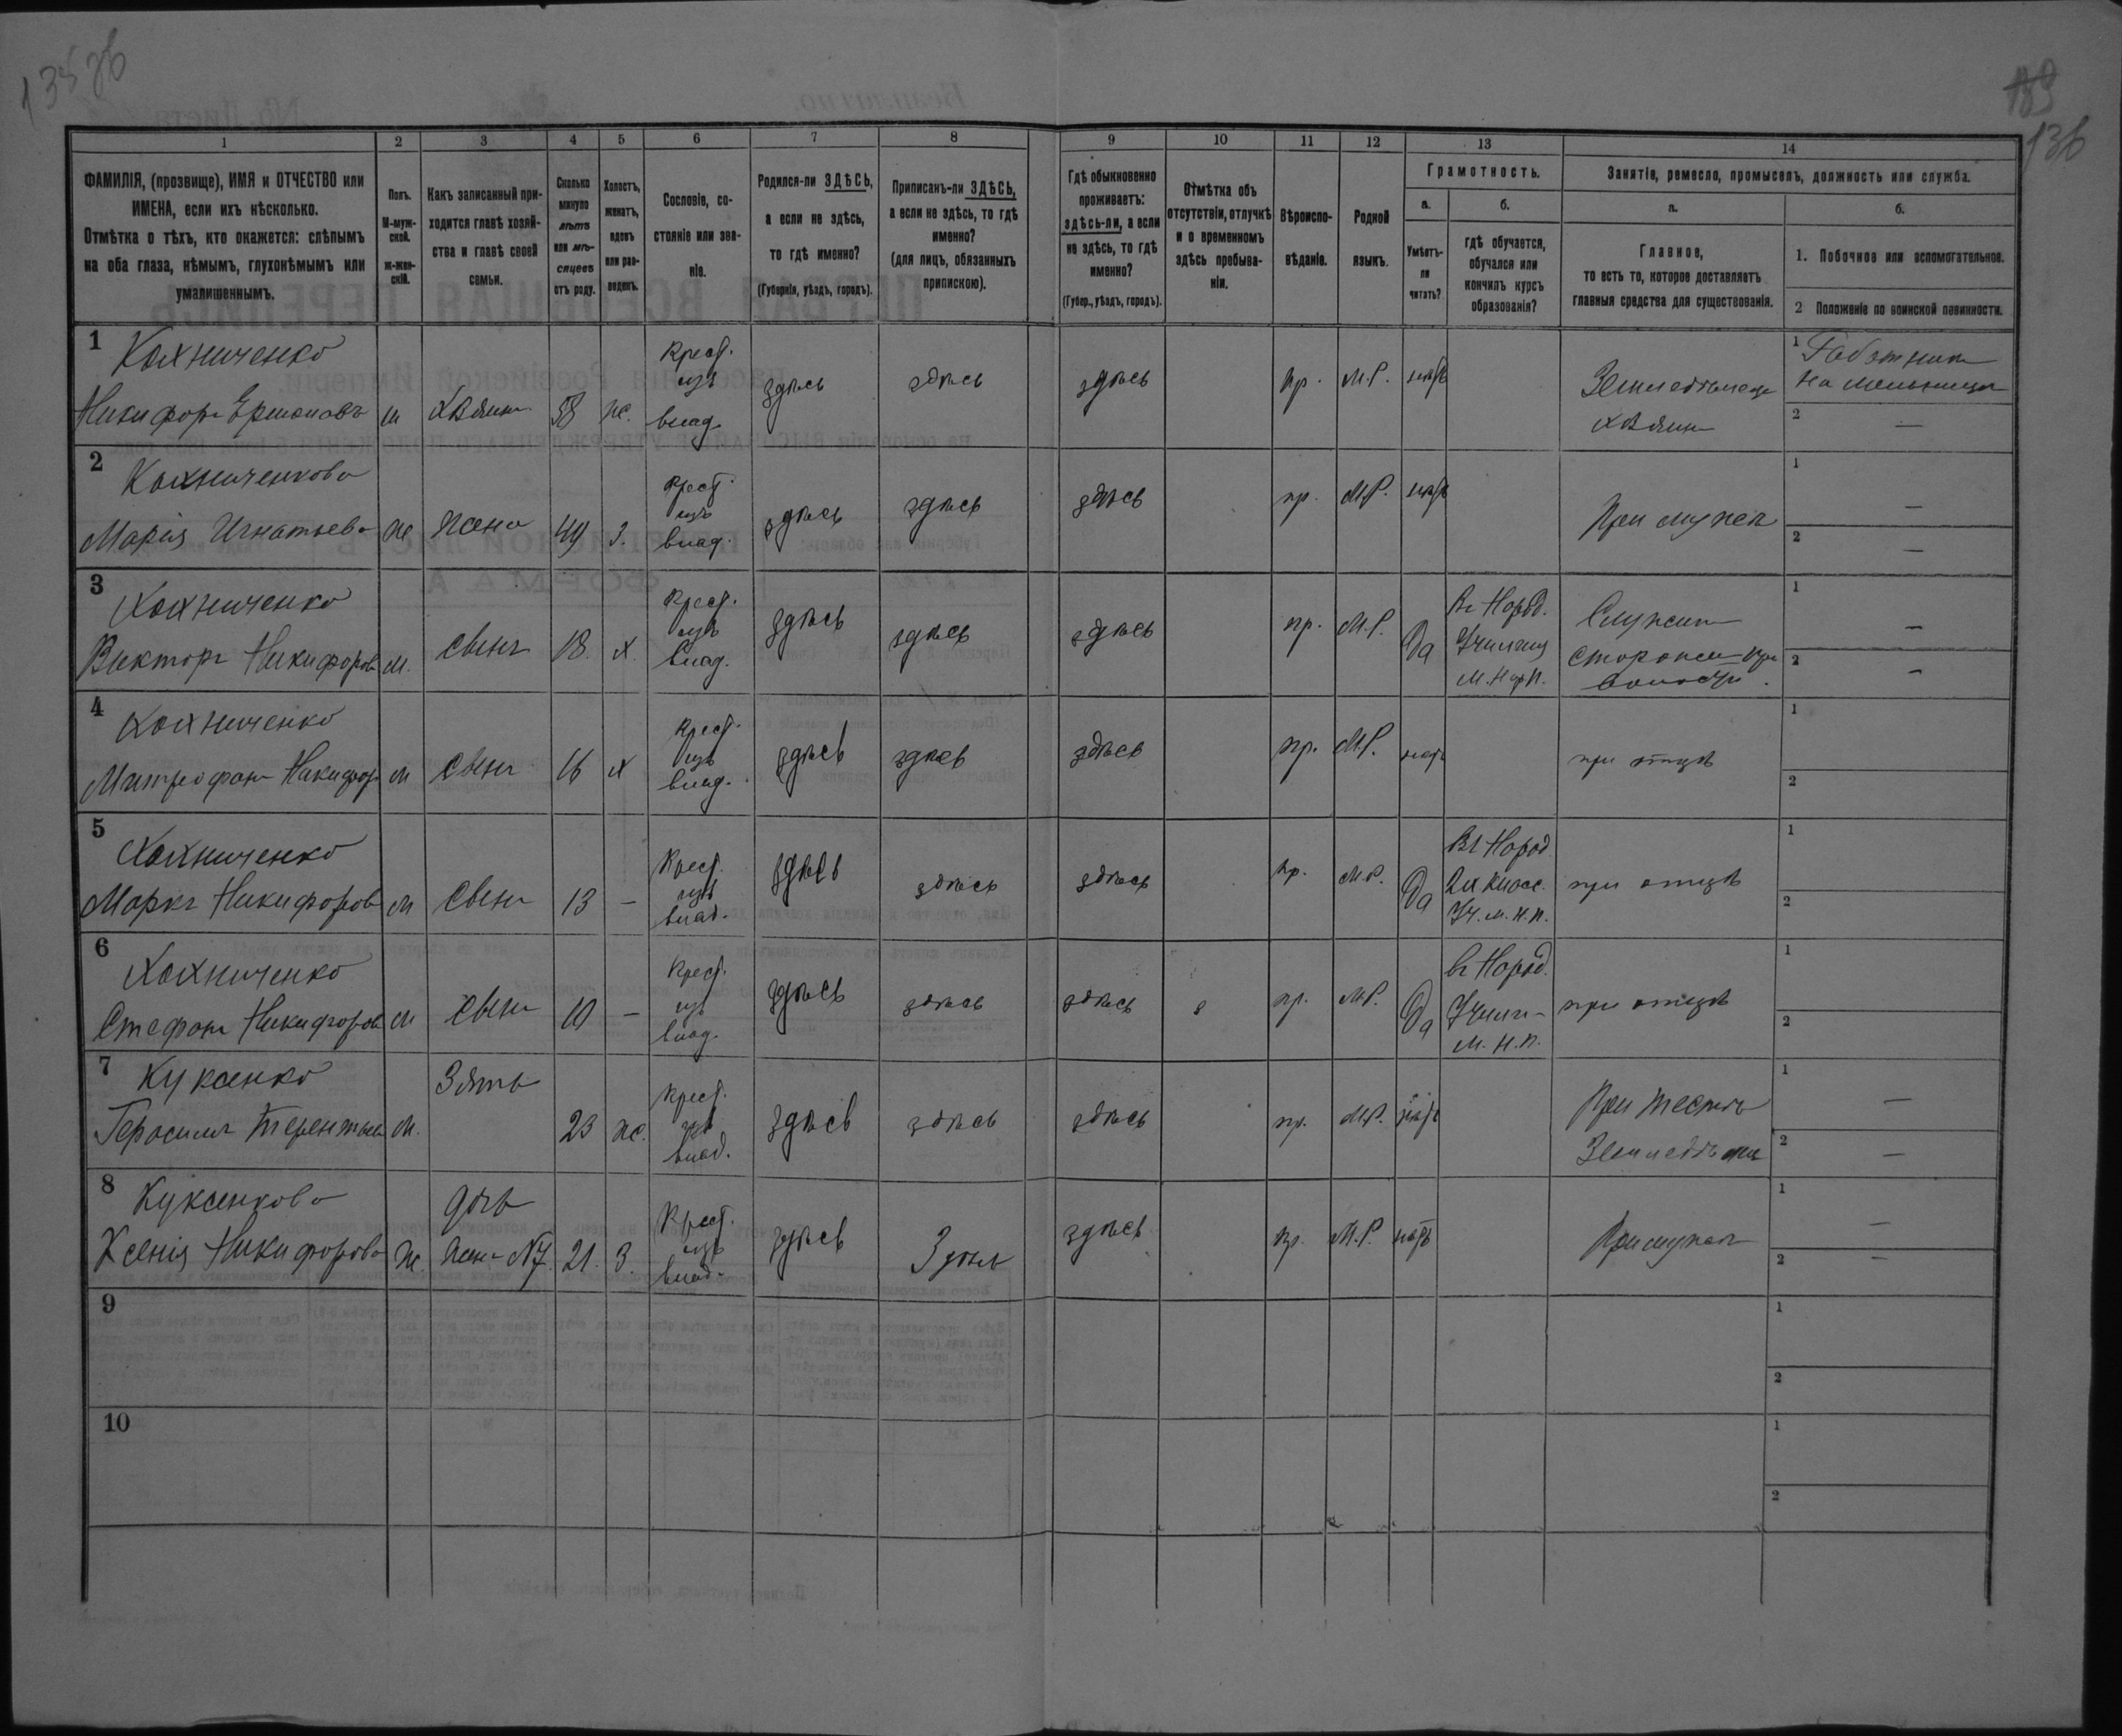 135 об
139
136
1 2 3 4 5 6 7 8 9 10 11 12 13 14
ФАМИЛІЯ, (прозвище), ИМЯ и ОТЧЕСТВО или ИМЕНА, если ихъ нѣсколько.
Отмѣтка о тѣхъ, кто окажется: слѣпымъ на оба глаза, нѣмымъ, глухонѣмымъ или умалишеннымъ.
Полъ. М-мужской. ж-женскій.
Какъ записанный приходится главѣ хозяйства и главѣ своей семьи.
Сколько минуло лѣтъ или мѣсяцевъ отъ роду.
Холостъ, женатъ, вдовъ или разведенъ.
Сословіе, состояніе или званіе.
Родился-ли ЗДѢСЬ, а если не здѣсь, то гдѣ именно?
(Губернія, уѣздъ, городъ).
Приписанъ-ли ЗДѢСЬ, а если не здѣсь, то гдѣ именно?
(для лицъ, обязанныхъ припискою).
Гдѣ обыкновенно проживаетъ: здѣсь-ли, а если не здѣсь, то гдѣ именно?
(Губер., уѣздъ, городъ).
Отмѣтка объ отсутствіи, отлучкѣ и о временномъ здѣсь пребываніи.
Вѣроисповѣданіе.
Родной языкъ.
Грамотность.
а. Умѣетъ-ли читать?
б. гдѣ обучается, обучался или кончилъ курсъ образованія?
Занятіе, ремесло, промыселъ, должность или служба.
а. Главное, то есть то, которое доставляетъ главныя средства для существованія.
б.
1. Побочное или вспомогательное.
2 Положеніе по воинской повинности.
1 Кохниченко
Никифоръ Ермоловъ м хозяинъ 58 ж. Крест. изъ влад. здѣсь здѣсь здѣсь пр. М.Р. нѣтъ Земледѣлецъ хозяинъ
1 Работникъ на мельницѣ
2 —
2 Кохниченкова
Марія Игнатьева ж жена 49 з. Крест. изъ влад. здѣсь здѣсь здѣсь пр. М.Р. нѣтъ При мужѣ
1 —
2 —
3 Кохниченко
Викторъ Никифоровъ м. сынъ 18. х. Крест. изъ влад. здѣсь здѣсь здѣсь пр. М.Р. Да Въ Народ. Училищ М. Нар П. Служитъ сторожемъ при волости.
1 —
2 —
4 Кохниченко
Митрофанъ Никифор м сынъ 16 х Крест. изъ влад. здѣсь здѣсь здѣсь пр. М.Р. нѣтъ при отцѣ
1
2
5 Кохниченко
Марко Никифоровъ м сынъ 13 — Крест. изъ влад. здѣсь здѣсь здѣсь пр. М.Р. Да Въ Народ 2х класс. Уч. М. Н. П. при отцѣ
1
2
6 Кохниченко
Стефанъ Никифоровъ м сынъ 10 — Крест. изъ влад. здѣсь здѣсь здѣсь пр. М.Р. Да въ Народ. Учили- М. Н. П. при отцѣ
1
2
7 Куксенко
Герасимъ Терентьевъ м. Зять 23 ж. Крест. изъ влад. здѣсь здѣсь здѣсь пр. М.Р. нѣтъ При тестѣ Земледѣлецъ
1 —
2 —
8 Куксенкова
Ксенія Никифорова ж. дочь жена №7. 21. З. Крест. изъ влад. здѣсь здѣсь здѣсь пр. М.Р. нѣтъ При мужѣ
1 —
2 —
9
1
2
10
1
2